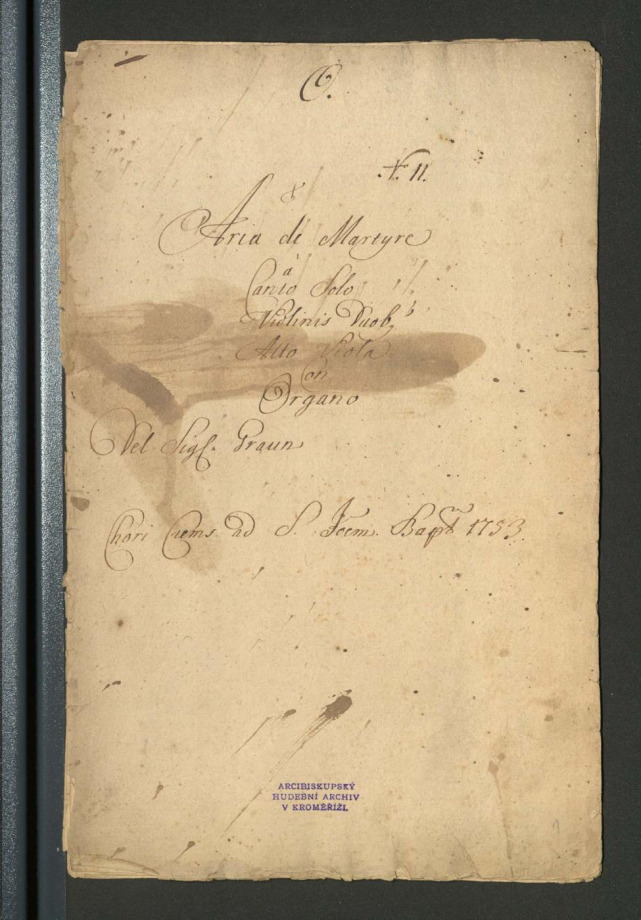 C.
N. 11.
Aria de Martyre
à
Canto Solo
Violinis Duob,s
Alto Viola
Con
Organo
Del Sig. Graun
Chori ad S. Joem. Bapt 1753.
ARCIBISKUPSKÝ
HUDEBNÍ ARCHIV
V KROMĚŘÍŽI.